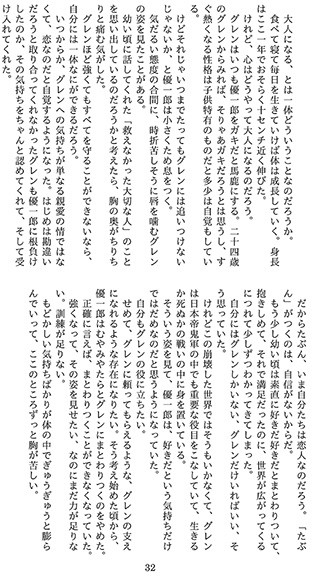 大人になる、とは一体どういうことなのだろうか。
食べて寝て毎日を生きていけば体は成長していく。身長
はここ一年でおそらく十センチ近く伸びた。
けれど、心はどうやって大人になるのだろう。
グレンはいつも優一郎をガキだと馬鹿にする。二十四歳
のグレンからみれば、そりゃあガキだろうとは思うし、す
ぐ熱くなる性格は子供特有のものだと多少は自覚もしてい
る。
けどそれじゃいつまでたってもグレンには追いつけない
じゃないか、と優一郎は小さくため息をつく。
気だるい態度の合間に、時折苦しそうに唇を噛むグレン
の姿を見たことがある。
幼い頃に話してくれた「救えなかった大切な人」のこと
を思い出しているのだろうかと考えたら、胸の奥がちりち
りと痛む気がした。
グレンほど強くてもすべてを守ることができないなら、
自分には一体なにができるだろう。
いつからか、グレンへの気持ちが単なる親愛の情ではな
くて、恋なのだと自覚するようになった。はじめは勘違い
だろうと取り合ってくれなかったグレンも優一郎に根負け
したのか、その気持ちをちゃんと認めてくれて、そして受
け入れてくれた。
だからたぶん、いま自分たちは恋人なのだろう。「たぶ
ん」がつくのは、自信がないからだ。
もう少し幼い頃は素直に好きだ好きだとまとわりついて、
抱きしめて、それで満足だったのに、世界が広がってくる
につれて少しずつわかってきてしまった。
自分にはグレンしかいない、グレンだけいればいい、そ
う思っていた。
けれどこの崩壊した世界ではそうもいかなくて、グレン
は日本帝鬼軍の中でも重要な役目をこなしていて、生きる
か死ぬかの戦いの中に身を置いている。
そういう姿を見て、優一郎は、好きだという気持ちだけ
ではだめなのだと思うようになっていた。
自分もグレンの役に立ちたい。
せめて、グレンに頼ってもらえるような、グレンの支え
になれるような存在になりたい。そう考え始めた頃から、
優一郎はむやみやたらとグレンにまとわりつくのをやめた。
正確に言えば、まとわりつくことができなくなっていた。
強くなって、その姿を見せたい、なのにまだ力が足りな
い。訓練が足りない。
もどかしい気持ちばかりが体の中でぎゅうぎゅうと膨ら
んでいって、ここのところずっと胸が苦しい。
32